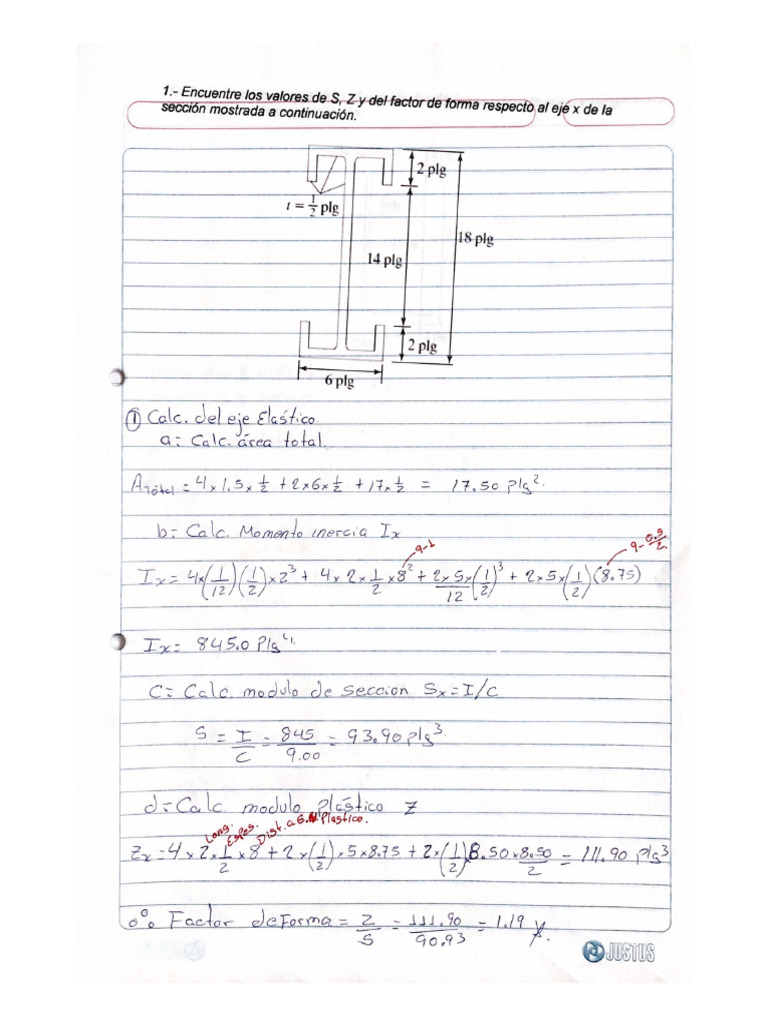 1.- Encuentre los valores de S, Z y del factor de forma respecto al eje x de la
sección mostrada a continuación.
2 plg
t = 1/2 plg
18 plg
14 plg
2 plg
6 plg
① Calc. del eje Elástico.
a: Calc. área total.
A Total = 4 x 1,5 x 1/2 + 2 x 6 x 1/2 + 17 x 1/2 = 17.50 plg².
b = Calc. Momento inercia Ix
9-1
9 - 0.5/2
Ix = 4 x (1/12)(1/2) x 2³ + 4 x 2 x 1/2 x 8² + 2 x 5 x/12 (1/2)³ + 2 x 5 x (1/2)(8.75)
Ix = 845.0 Plg⁴.
C = Calc. modulo de seccion Sx = I/c
S = I/C = 845/9.00 = 93.90 plg³
d = Calc. modulo plástico Z
Long. Espes. Dist. a E.N Plastico.
Zx = 4 x 2 x 1/2 x 8 + 2 x (1/2) x 5 x 8.75 + 2 x (1/2) 8.50 x 8.50/2 = 111.90 plg³
o°o Factor de Forma = Z/S = 111.90/90.93 = 1.19
JUSTUS